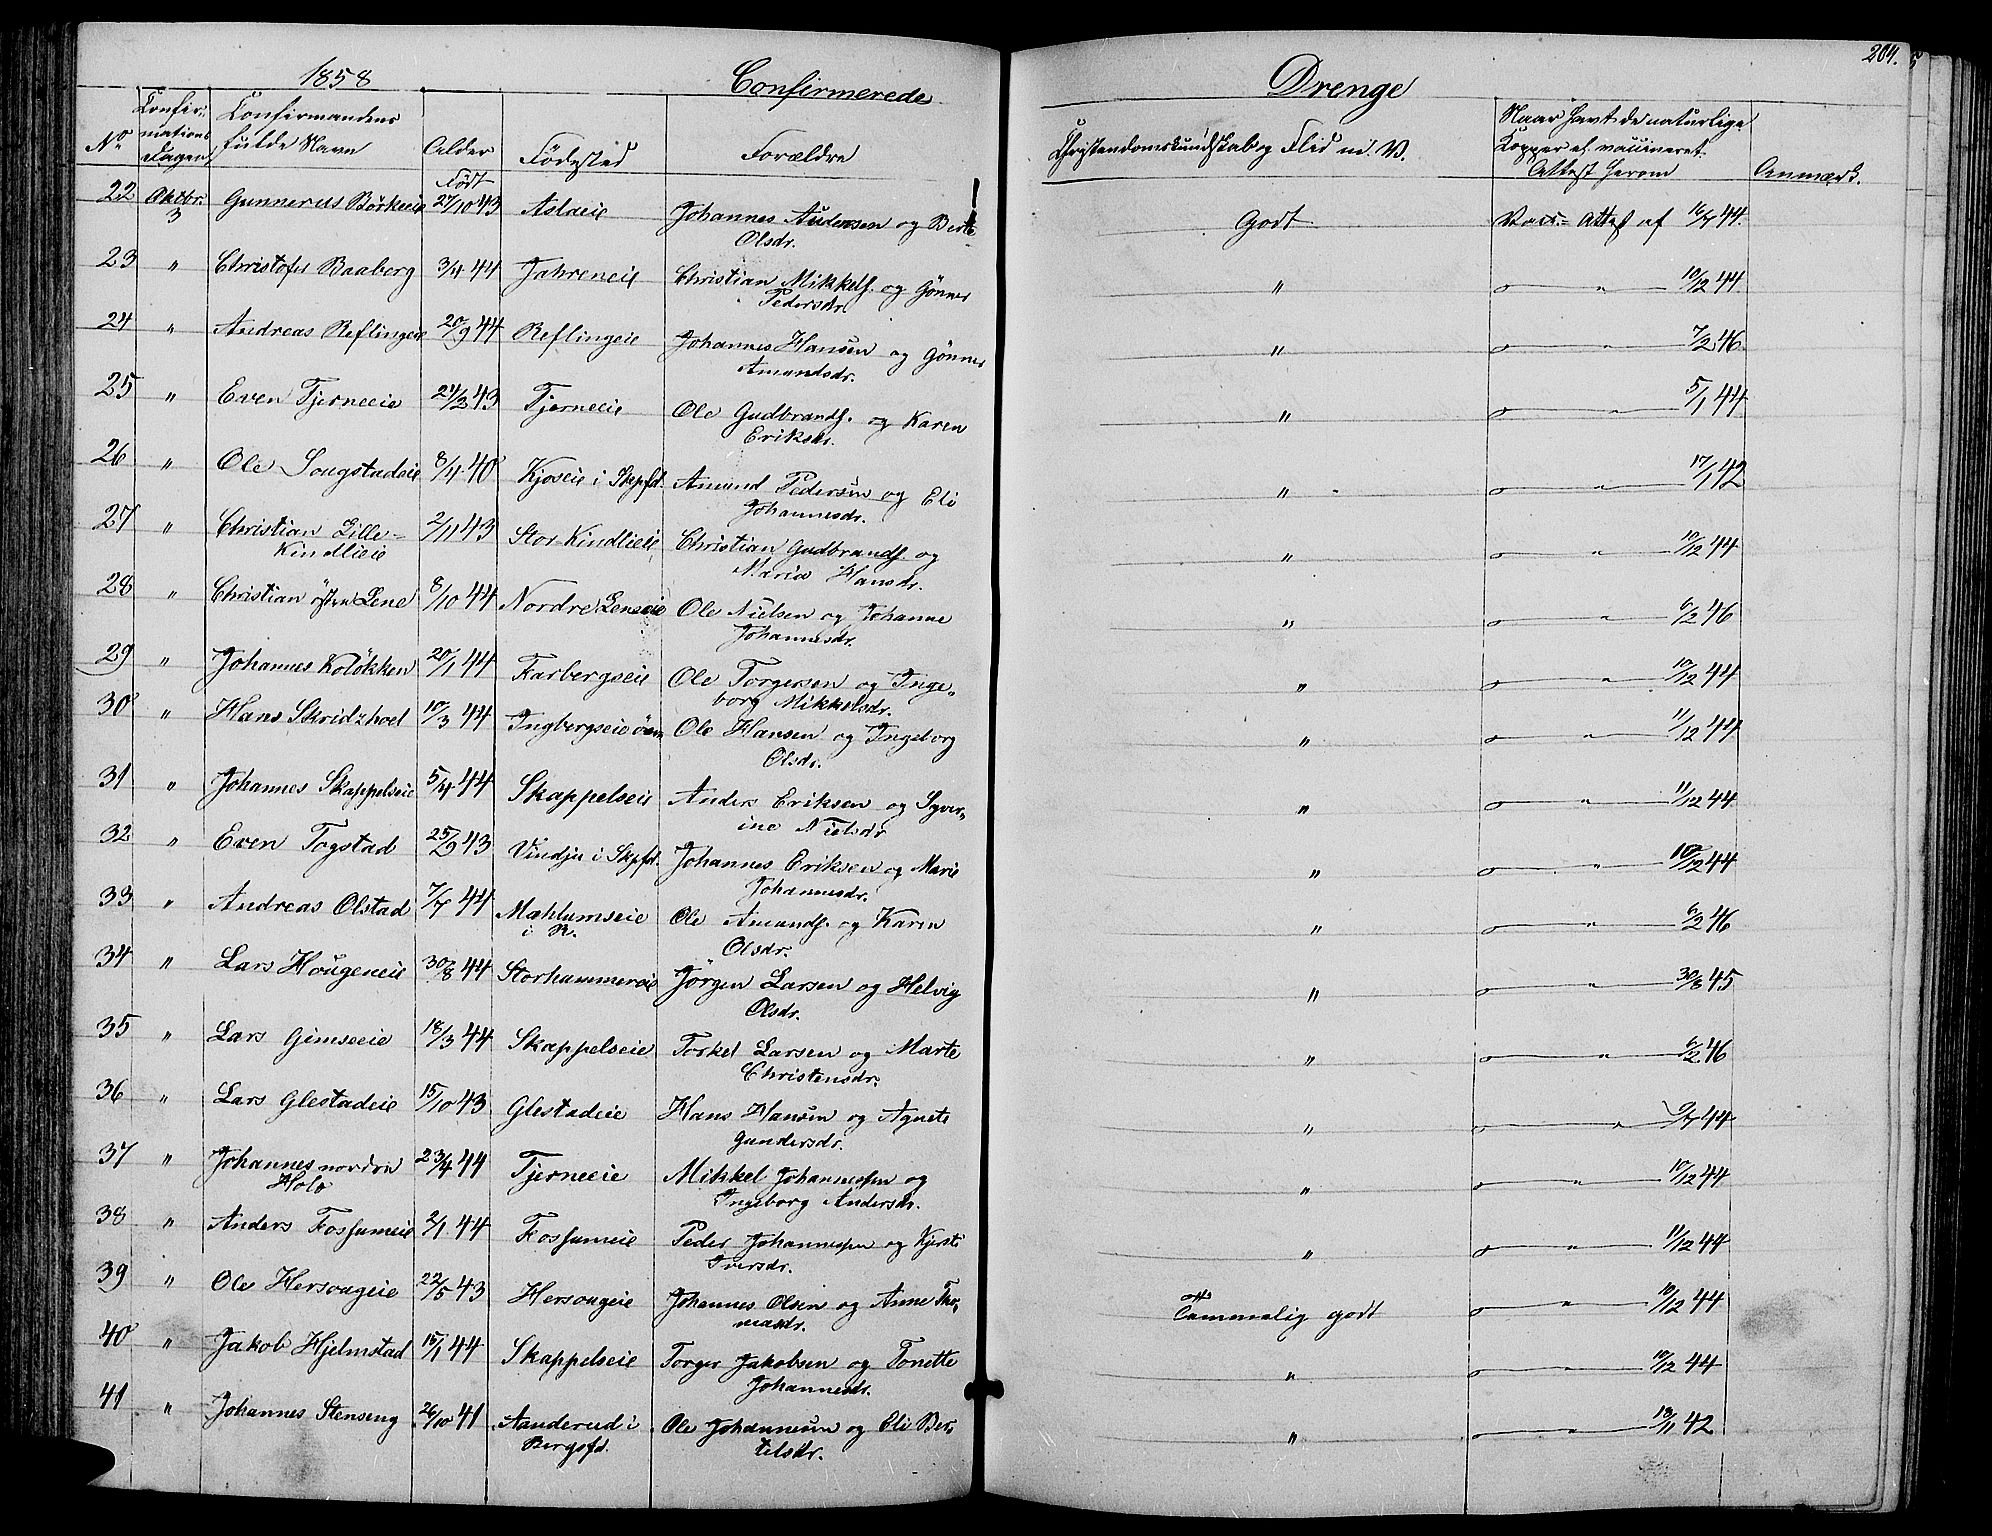 1858 Confirmerede Drenge 204.
No Confirmations Dagen Confirmandens fulde Navn Alder Fødested Forældre Christendomskundskab og Flid m. V. Naar havt de naturlige Kopper el. vaccineret Attest herom Anmærk.
Født
22 Oktbr. 3 Gunnerus Börkeeie 27/10 43 Aslaeie Johannes Andersen og Berte Godt Vacc. Attest af 16/7 44.
Olsdr.
23 " Christofer Baaberg 3/4 44 Jahreneie Christian Mikkels. og Gönner " " 10/12 44.
Pedersdr.
24 " Andreas Reflingeie 20/9 44 Reflingeie Johannes Hansen og Gönner " " 7/2 46.
Amundsdr.
25 " Even Tjerneeie 24/3 43 Tjerneeie Ole Gudbrands. og Karen " " 5/1 44
Eriksdr.
26 " Ole Sougstadeie 8/4 40 Kjoseie i Skpfd. Amund Pedersen og Eli " " 17/1 42
Johannesdr.
27 " Christian Lille- 2/11 43 Stor-Kindlieie Christian Gudbrands. og " " 10/12 44
Kindlieie Maria Hansdr.
28 " Christian östen Lene 8/10 44 Nordre Leneeie Ole Nielsen og Johanne " " 6/2 46
Johannesdr.
29 " Johannes Kolökken 20/1 44 Farbergseie Ole Torgersen og Inge- " " 10/12 44
borg Mikkelsdr.
30 " Hans Skridshoel 10/3 44 Ingbergseie Ole Hansen og Ingeborg " " 11/12 44
Olsdr.
31 " Johannes Skappelseie 5/4 44 Skappelseie Anders Eriksen og Syver- " " 11/12 44
ine Nielsdr
32 " Even Togstad 25/9 43 Vindju i Skpfd. Johannes Eriksen og Marie " " 10/12 44
Johannesdr.
33 " Andreas Olstad 7/7 44 Mæhlumseie Ole Amunds. og Karen " " 6/2 46
i R. Olsdr.
34 " Lars Hougeneie 30/8 44 Storhammereie Jörgen Larsen og Helvig " " 30/8 45
Olsdr.
35 " Lars Gimseeie 18/3 44 Skappelseie Torkel Larsen og Marte " " 6/2 46
Christensdr.
36 " Lars Glestadeie 15/10 43 Glestadeie Hans Hansen og Agnete " " 9/7 44
Gundersdr.
37 " Johannes nordre 23/4 44 Tjerneeie Mikkel Johannessen og " " 10/12 44
Holo Ingeborg Andersdr.
38 " Anders Fossumeie 2/1 44 Fossumeie Peder Johannessen og Kjersti " " 11/12 44
Iversdr.
39 " Ole Hersougeie 22/5 43 Hersougeie Johannes Olsen og Anne Tho- Temmelig godt " 10/12 44
masdr.
40 " Jakob Hjelmstad 15/1 44 Skappelseie Torger Jakobsen og Tonette " " 10/12 44
Johannesdr.
41 " Johannes Stenseng 26/10 41 Aanderud i Ole Johannesen og Eli Ber- " " 13/11 42
Bergsfd. telsdr.